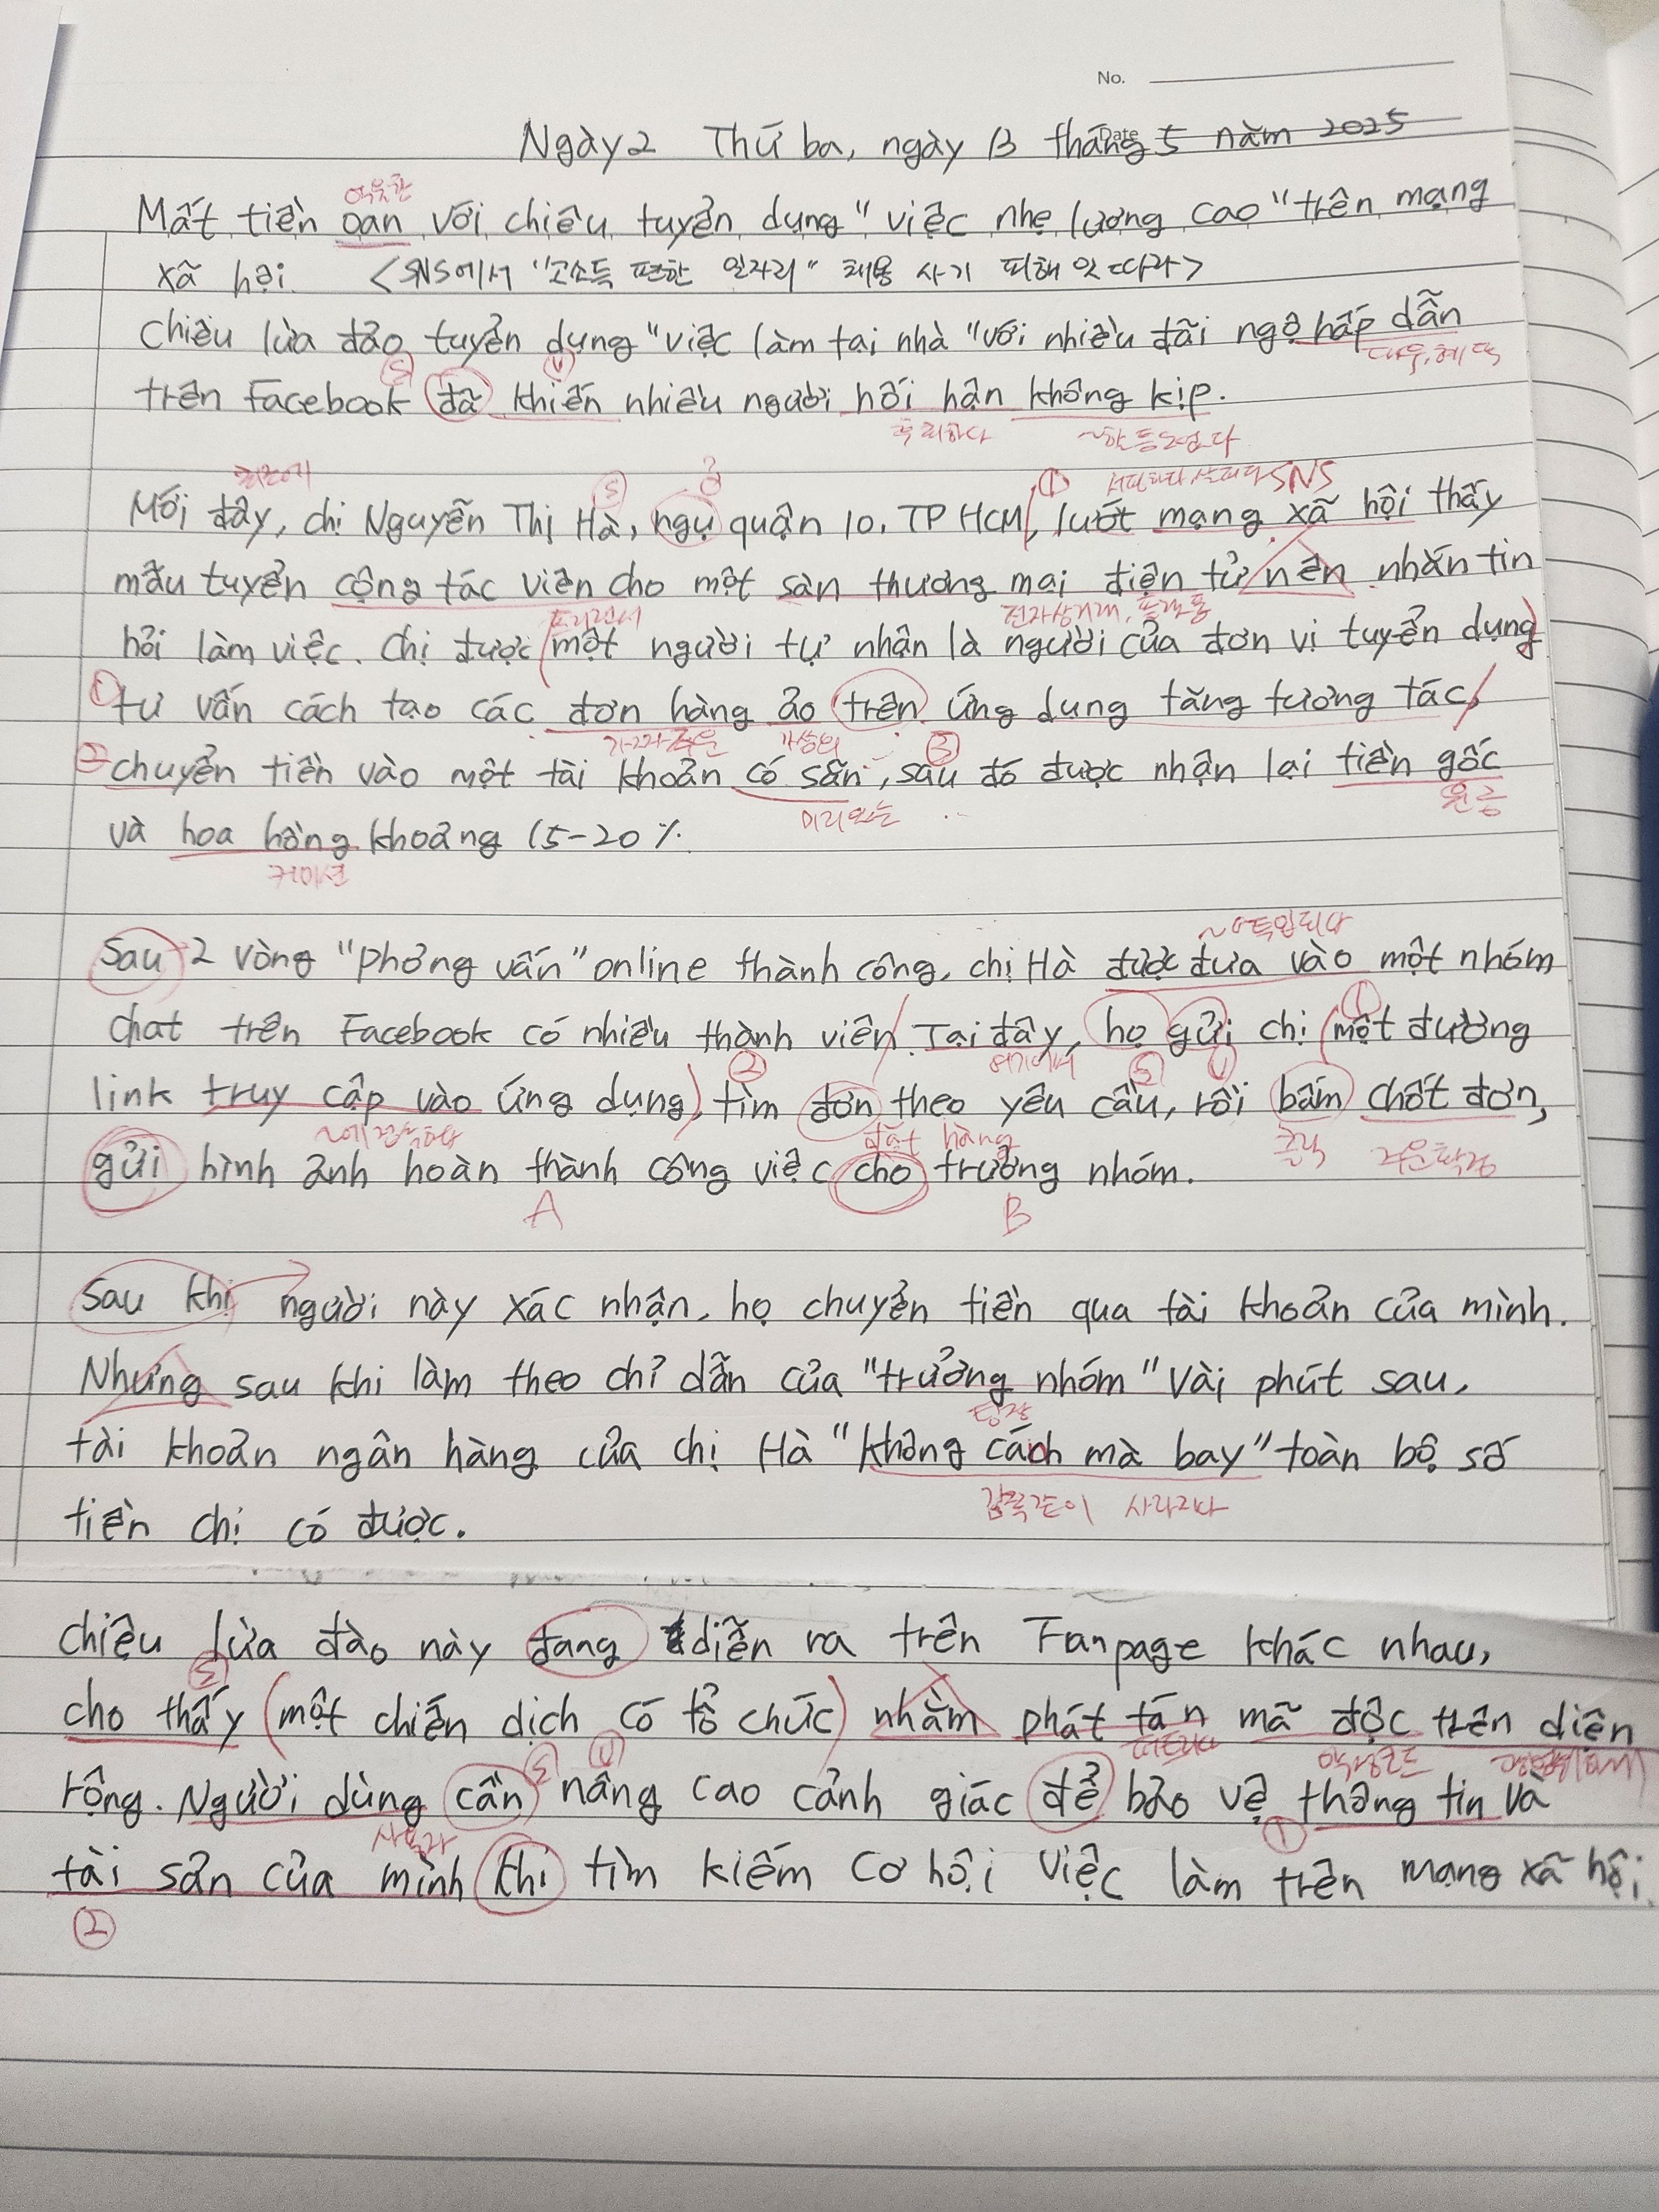 No.
Date
Ngày 2 Thứ ba, ngày 13 tháng 5 năm 2025
억울한
Mất tiền oan với chiêu tuyển dụng "việc nhẹ lương cao" trên mạng
xã hội. <SNS에서 "고소득 편한 일자리" 채용 사기 피해 잇따라>
Chiêu lừa đảo tuyển dụng "việc làm tại nhà" với nhiều đãi ngộ hấp dẫn
S V 대우, 혜택
trên Facebook đã khiến nhiều người hối hận không kịp.
후회하다 ~할 틈도없다
최근에 S SNS
Mới đây, chị Nguyễn Thị Hà, ngụ quận 10, TP HCM, lướt mạng xã hội thấy
mẫu tuyển cộng tác viên cho một sàn thương mại điện tử nên nhắn tin
프리랜서 전자상거래, 플랫폼
hỏi làm việc. Chị được một người tự nhận là người của đơn vị tuyển dụng
① tư vấn cách tạo các đơn hàng ảo trên ứng dụng tăng tương tác,
가상의 ③
② chuyển tiền vào một tài khoản có sẵn, sau đó được nhận lại tiền gốc
미리있는 원금
và hoa hồng khoảng 15-20%.
커미션
Sau 2 vòng "phỏng vấn" online thành công, chị Hà được đưa vào một nhóm
chat trên Facebook có nhiều thành viên. Tại đây, họ gửi chị một đường
② 여기에서 S V
link truy cập vào ứng dụng, tìm đơn theo yêu cầu, rồi bấm chốt đơn,
~에 접속하다 đặt hàng 클릭 주문확정
gửi hình ảnh hoàn thành công việc cho trưởng nhóm.
A B
Sau khi người này xác nhận, họ chuyển tiền qua tài khoản của mình.
Nhưng sau khi làm theo chỉ dẫn của "trưởng nhóm" vài phút sau,
팀장
tài khoản ngân hàng của chị Hà "không cách mà bay" toàn bộ số
감쪽같이 사라지다
tiền chị có được.
chiêu lừa đảo này đang diễn ra trên Fanpage khác nhau,
S
cho thấy (một chiến dịch có tổ chức) nhằm phát tán mã độc trên diện
S V 퍼트리다 악성코드
rộng. Người dùng cần nâng cao cảnh giác để bảo vệ thông tin và
사용자 ①
tài sản của mình khi tìm kiếm cơ hội việc làm trên mạng xã hội.
②